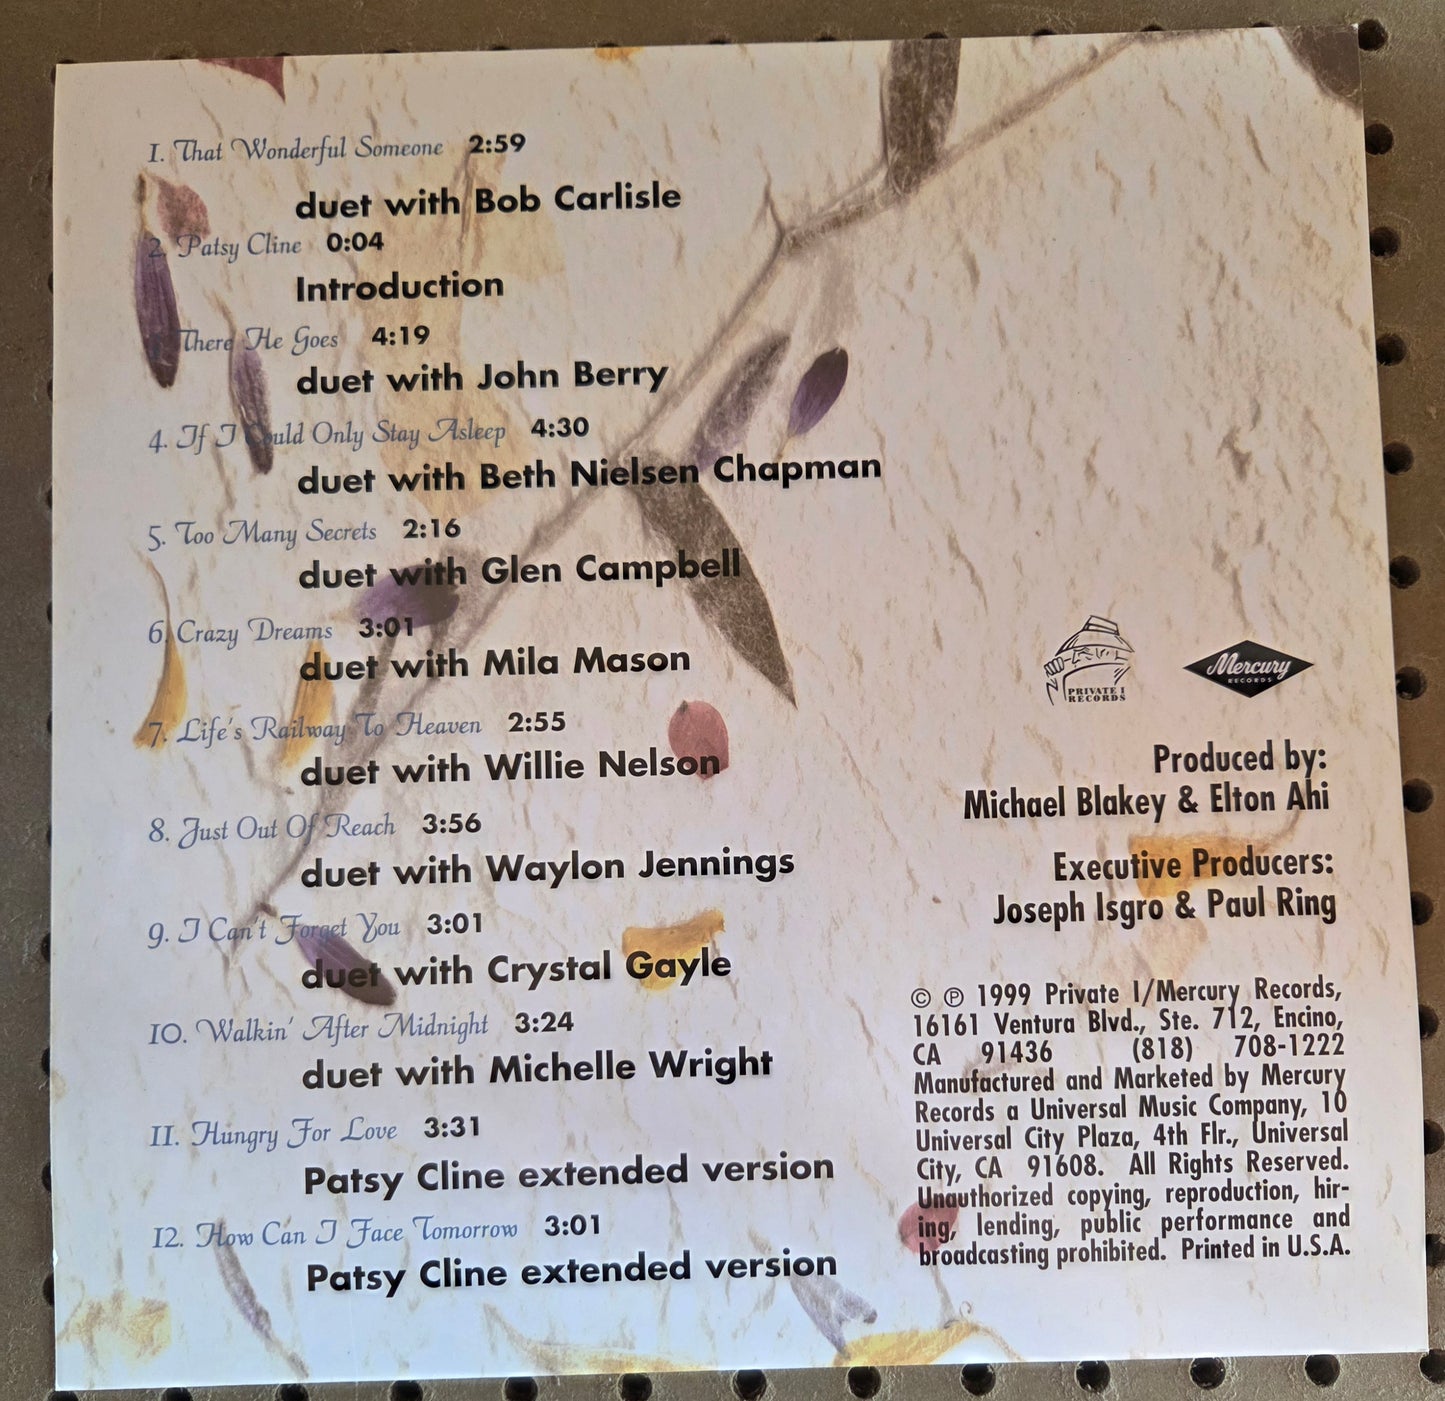 1. That Wonderful Someone 2:59
duet with Bob Carlisle
2. Patsy Cline 0:04
Introduction
There He Goes 4:19
duet with John Berry
4. If I Could Only Stay Asleep 4:30
duet with Beth Nielsen Chapman
5. Too Many Secrets 2:16
duet with Glen Campbell
6. Crazy Dreams 3:01
duet with Mila Mason
7. Life's Railway To Heaven 2:55
duet with Willie Nelson
8. Just Out Of Reach 3:56
duet with Waylon Jennings
9. I Can't Forget You 3:01
duet with Crystal Gayle
10. Walkin' After Midnight 3:24
duet with Michelle Wright
11. Hungry For Love 3:31
Patsy Cline extended version
12. How Can I Face Tomorrow 3:01
Patsy Cline extended version
PRIVATE I
RECORDS
Mercury
RECORDS
Produced by:
Michael Blakey & Elton Ahi
Executive Producers:
Joseph Isgro & Paul Ring
© ℗ 1999 Private I/Mercury Records,
16161 Ventura Blvd., Ste. 712, Encino,
CA 91436 (818) 708-1222
Manufactured and Marketed by Mercury
Records a Universal Music Company, 10
Universal City Plaza, 4th Flr., Universal
City, CA 91608. All Rights Reserved.
Unauthorized copying, reproduction, hir-
ing, lending, public performance and
broadcasting prohibited. Printed in U.S.A.